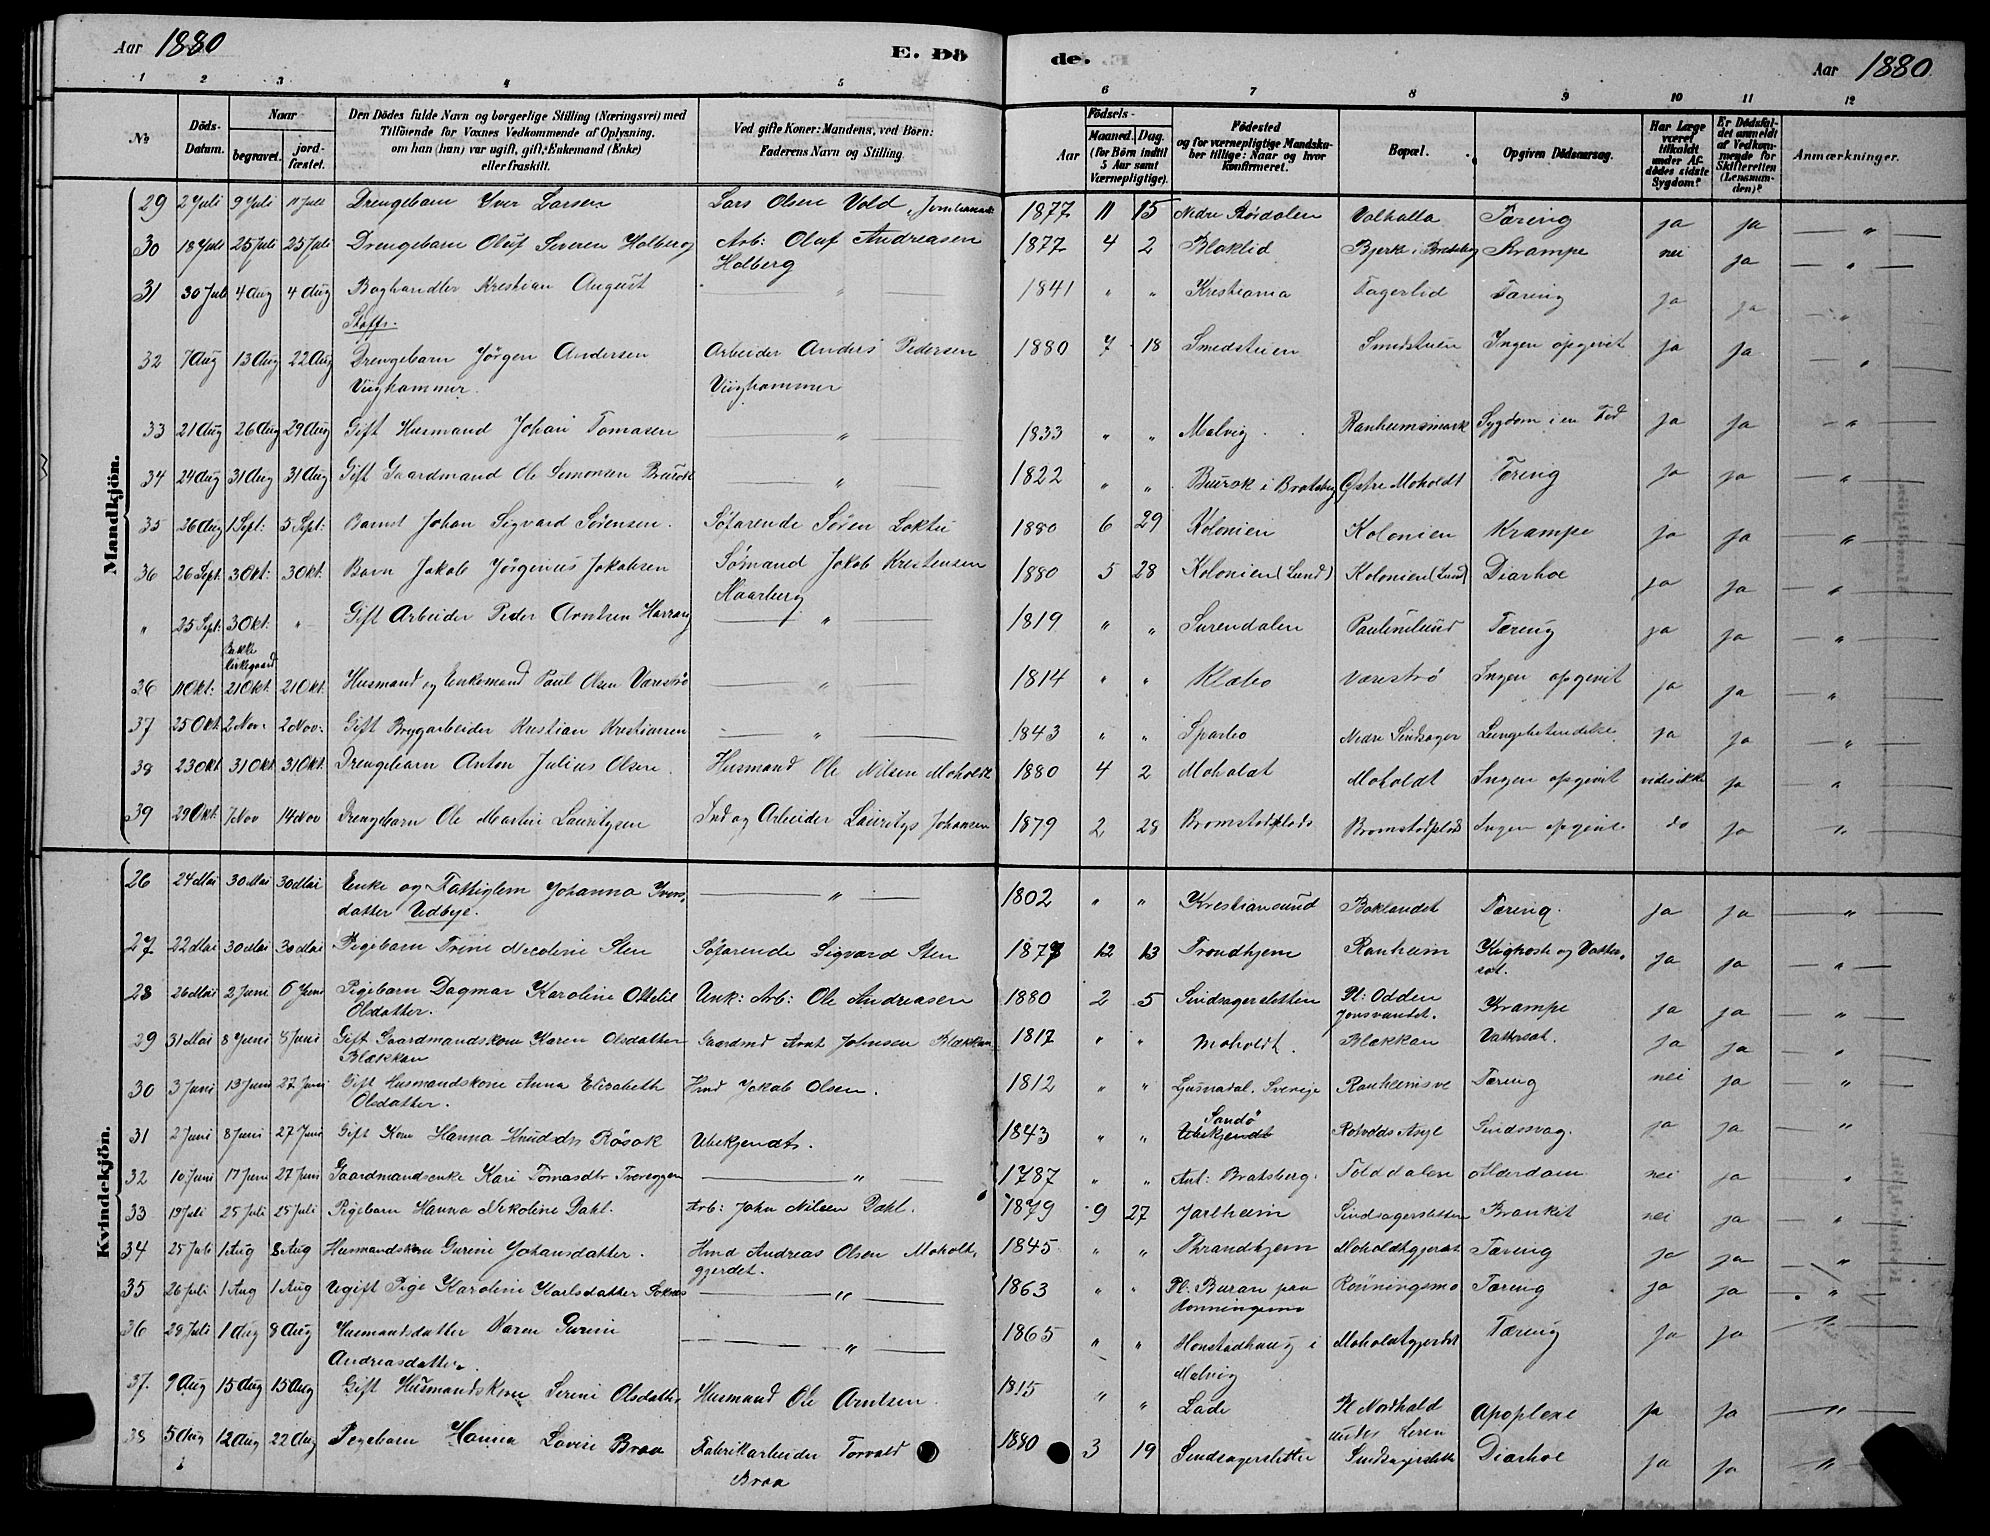 Aar 1880
E. Dö
de.
Aar 1880
1 2 3 4 5 6 7 8 9 10 11 12
No
Döds-Datum.
Naar
begravet.
jord-fæstet.
Den Dödes fulde Navn og borgerlige Stilling (Næringsvei) med
Tilföiende for Voxnes Vedkommende af Oplysning.
om han (hun) var ugift, gift, Enkemand (Enke)
eller fraskilt.
Ved gifte Koner: Mandens, ved Börn:
Faderens Navn og Stilling.
Födsels-
Aar
Maaned. Dag.
(for Börn indtil
5 Aar samt
Værnepligtige).
Födested
og for værnepligtige Mandska-
ber tillige: Naar og hvor
konfirmeret.
Bopæl.
Opgiven Dödsaarsag.
Har Læge
været
tilkaldt
under Af-
dödes sidste
Sygdom?
Er Dödsfal-
det anmeldt
af Vedkom-
mende for
Skifteretten
(Lensman-
den)?
Anmærkninger.
Mandkjön.
29 2 Juli 9 Juli 11 Juli Drengebarn Iver Larsen Lars Olsen Vold 1877 11 15 Nedre Størdalen Valhalla Tæring ja ja "
30 18 Juli 25 Juli 25 Juli Drengebarn Oluf Søren Holberg Arb: Oluf Andreasen 1877 4 2 Bloklid Bjerke i Bratsberg Krampe nei ja "
Holberg
31 30 Juli 4 Aug 4 Aug Boghandler Kristian August " 1841 " " Kristiania Fagerlid Tæring ja ja "
Steffs.
32 7 Aug 13 Aug 22 Aug Drengebarn Jörgen Andersen Arbeider Anders Pedersen 1880 7 18 Smedstuen Smedstuen Ingen opgivet ja ja "
Viighammer. Viighammer
33 21 Aug 26 Aug 29 Aug Gift Husmand Johan Tomasen " 1833 " " Malvig Ranheimsmark Sygdom i en Fod ja ja "
34 24 Aug 31 Aug 31 Aug Gift Gaardmand Ole Simonsen Bruråk " 1822 " " Buråk i Bratsberg Østre Moholdt Tæring ja ja "
35 26 Aug 1 Sept: 5 Sept: Barnet Johan Sigvard Sørensen. Søfarende Søren Loktu 1880 6 29 Kolonien Kolonien Krampe ja ja "
36 26 Sept. 3 Okt: 3 Okt. Barn Jakob Jørginius Jakobsen Sømand Jakob Kristensen 1880 5 28 Kolonien (Lund) Kolonien (Lund) Diarhoe ja ja "
Haarberg
" 25 Sept: 3 Okt. " Gift Arbeider Peder Arntsen Harrang " 1819 " " Surendalen Paulinelund Tæring ja ja "
Bakke
Kirkegaard
36 11 Okt: 21 Okt. 21 Okt. Husmand og Enkemand Paul Olsen Værestrø " 1814 " " Klæbo Værestrø Ingen opgivet ja ja "
37 25 Okt. 2 Nov. 2 Nov. Gift Brygarbeider Kristian Kristiansen " 1843 " " Sparbo Nedre Sindsager Lungebetændelse ja ja "
38 23 Okt 31 Okt 31 Okt. Drengebarn Anton Julius Olsen. Husmand Ole Nilsen Moholdt 1880 4 2 Moholdt Moholdt Ingen opgivet vides ikke ja "
39 29 Okt. 7 Nov 14 Nov Drengebarn Ole Martin Lauritsen Ind og Arbeider Lauritys Johansen 1879 2 28 Bromstadplads Bromstadplads Ingen opgivet do ja "
Kvindekjön.
26 24 Mai 30 Mai 30 Mai Enke og Fattiglem Johanna Ivers- " 1802 " " Kristiansund Baklandet Tæring. ja ja "
datter Udbye.
27 22 Mai 30 Mai 30 Mai Pigebarn Trine Nicoline Sten Søfarende Sigvard Sten 1877 12 13 Trondhjem Ranheim Kighoste ogВатter- ja ja "
sot.
28 26 Mai 2 Juni 6 Juni Pigebarn Dagmar Karoline Ottelie Unk: Arb: Ole Andreasen 1880 2 5 Sindsagersletten Pl: Odden Krampe ja ja "
Olsdatter. Jonsvandet.
29 31 Mai 8 Juni 8 Juni Gift Gaardmandskone Karen Olsdatter Gaardmd Arnt Johnsen Blækkan 1817 " " Moholdt. Blækkan Vattersot. ja ja "
Blækkan
30 3 Juni 13 Juni 27 Juni Gift Husmandskone Anna Elisabeth Hmd Jakob Olsen. 1812 " " Ljusnedal. Sverige Ranheimsve Tæring nei ja "
Olsdatter.
31 2 Juni 8 Juni 27 Juni Gift Kone Hanna Knudsdtr Røsok Ubekjendt. 1843 " " Sandø Ubekjendt Rotvolds Asyl Sindssvag. ja ja "
32 10 Juni 17 Juni 27 Juni Gaardmandsenke Kari Tomasdtr Tvereggen " 1787 " " Ant: Bratsberg. Tolddalen Alderdom nei ja "
33 19 Juli 25 Juli 25 Juli Pigebarn Hanna Nikoline Dahl. Arb: John Nilsen Dahl. 1879 9 27 Jarlheim Sindsagersletten Bronkit nei ja "
34 25 Juli 1 Aug 8 Aug Husmandskone Gurine Johansdatter. Hmd Andreas Olsen Moholt- 1845 " " Throndhjem Moholdtgjerdet Tæring ja ja "
gjerdet.
35 26 Juli 1 Aug 1 Aug Ugift Pige Karoline Karlsdatter Soknes " 1863 " " Pl: Buran paa Rönningsmo Tæring ja ja "
Rönningsmo
36 29 Juli 1 Aug 8 Aug Husmandsdatter Karen Gurine " 1865 " " Honstadhaug i Moholdtgjerdet Tæring ja ja "
Andreasdatter. Malvig
37. 9 Aug 15 Aug 15 Aug Gift Husmandskone Serine Olsdatter Husmand Ole Arntsen. 1815 " " Lade Pl Nordhald Apoplexe ja ja "
under Leren
38 5 Aug 12 Aug 22 Aug Pegebarn Hanna Lovise Braa Fabrikarbeider Torvald 1880 3 19 Sindsagersletten Sindsagerslette Diarhoe ja ja "
Braa